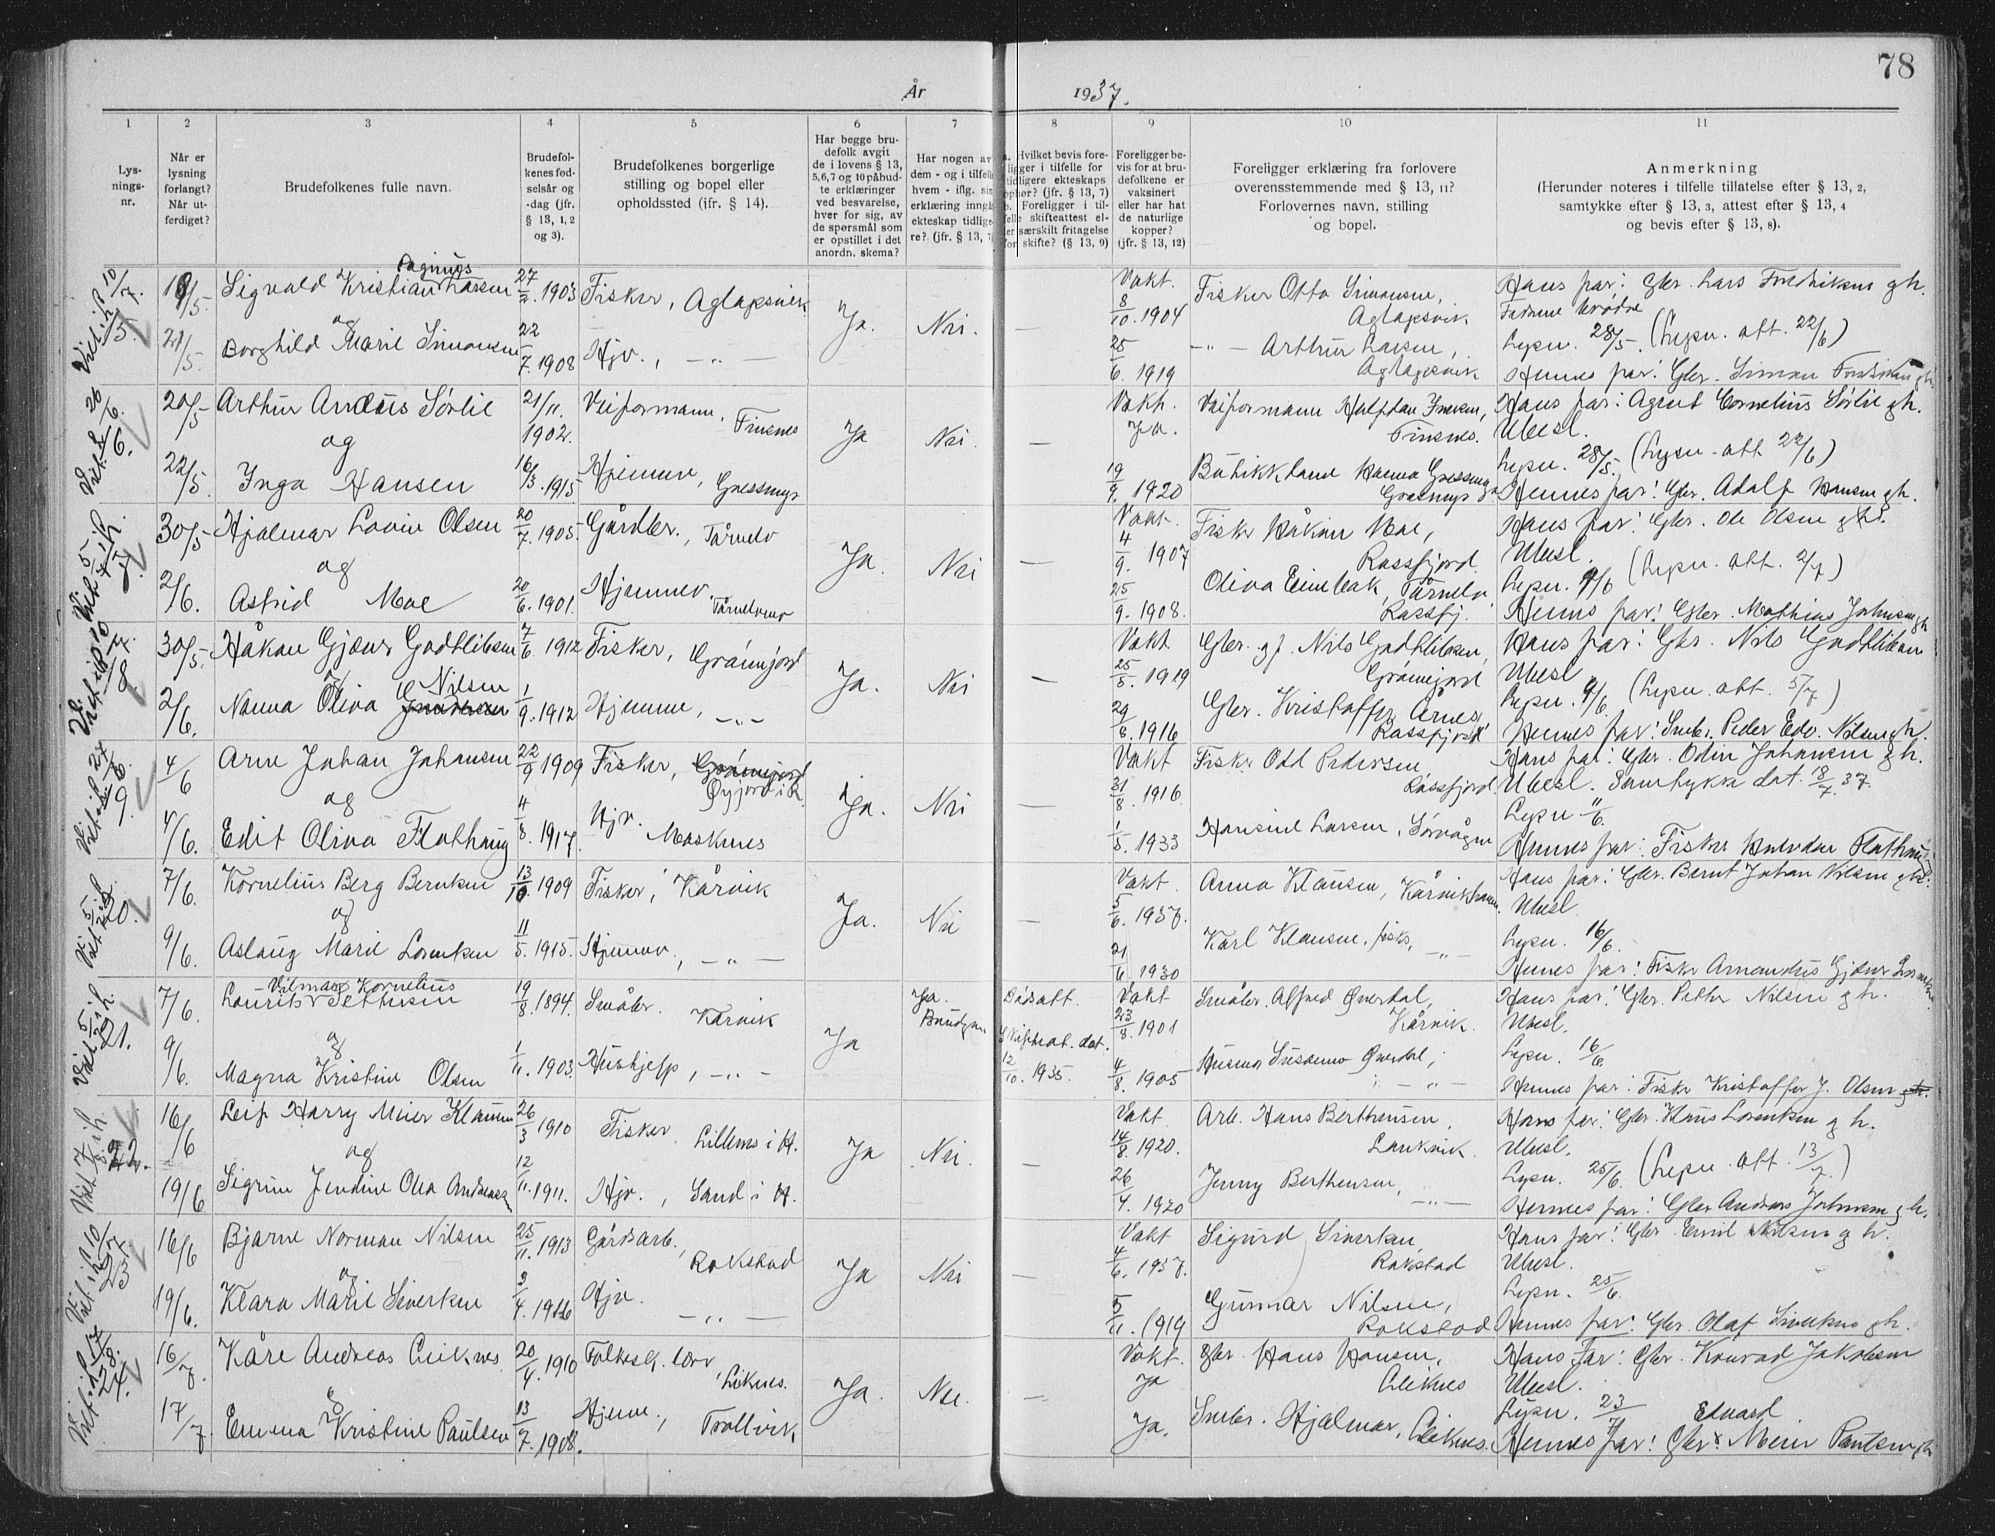 78
År 1937.
1 2 3 4 5 6 7 8 9 10 11
Lys-
nings-
nr.
Når er
lysning
forlangt?
Når ut-
ferdiget?
Brudefolkenes fulle navn.
Brudefol-
kenes fød-
selsår og
-dag (jfr.
§ 13, 1, 2
og 3).
Brudefolkenes borgerlige
stilling og bopel eller
opholdssted (jfr. § 14).
Har begge bru-
defolk avgit
de i lovens § 13,
5,6,7 og 10 påbud-
te erklæringer
ved besvarelse,
hver for sig, av
de spørsmål som
er opstillet i det
anordn. skema?
Har nogen av
dem - og i tilfelle
hvem - iflg. sin
erklæring inngå
ekteskap tidlige-
re? (jfr. § 13, 7
Hvilket bevis fore-
ligger i tilfelle for
tidligere ekteskaps
ophør? (jfr. § 13, 7)
b. Foreligger i til-
felle skifteattest el-
ler særskilt fritagelse
for skifte? (§ 13, 9)
Foreligger be-
vis for at bru-
defolkene er
vaksinert
eller har hat
de naturlige
kopper?
(jfr. § 13, 12)
Foreligger erklæring fra forlovere
overensstemmende med § 13, 11?
Forlovernes navn, stilling
og bopel.
Anmerkning
(Herunder noteres i tilfelle tillatelse efter § 13, 2,
samtykke efter § 13, 3, attest efter § 13, 4
og bevis efter § 13, 8).
5.
Sigvald Kristian Larsen 27/2 1903 Fisker, Aglapsvik
Ja. Nei. — Vakt. 8/10. 1904 Fisker Otto Simonsen, Aglapsvik
Hans far: Gbr. Lars Fredriksen g h.
21/5. og
Borghild Marie Simonsen 22/7. 1908 Hjv., — „ —
25/6. 1919 — „ — Arthur Larsen, Aglapsvik
Lysn. 28/5. (Lysn. att. 22/6)
Hennes far: Gbr. Simon
6.
20/5 Arthur Andeus Sørlie 21/11. 1902. Veiformann, Finsnes
Ja Nei. — Vakt. Ja. Veiformann Halfdan Jensen, Finsnes.
Hans far: Agent Cornelius Sørlie g h.
Ubesl.
og
22/5. Inga Hansen 16/3. 1915 Hjemme, Gressmyr
19/9. 1920
Lysn. 28/5. (Lysn. att 22/6)
Hennes far: Gbr. Adolf Hansen g h.
30/5 Hjalmar Lovin Olsen 20/7. 1905. Gårdbr., Tårnelv
Ja. Nei — Vakt. 4/9. 1907 Fisker Håkon Moe, Rossfjord.
Hans far: Gbr. Ole Olsen g h.
Ubesl.
og
2/6. Astrid Moe 20/6. 1901. Hjemmev.
25/9. 1908.
(Lysn. att. 2/7)
Hennes far: Gbr. Mathias Johnsen g h
8
30/5. Håkon Gjæver Godtlibsen 7/6. 1912 Fisker, Grønnjord
Ja. Nei — Vakt 25/5. 1919 Gbr. gf. Nils Godtlibsen, Grønnjord
Hans far: Gbr. Nils Godtlibsen
Ubesl
og
2/6. Nanna Oliva Nilsen 1/9. 1912 Hjemme, — „ —
29/6. 1916 Gbr. Kristoffer Arnes, Rossfjord
Lysn. 9/6. (Lysn. att. 5/7)
Hennes far: Småbr. Peder Edv. Nilsen g h.
9.
4/6 Arne Johan Johansen 22/9 1909 Fisker,
Ja. Nei — Vakt 31/8. 1916. Fisker Odd Pedersen, Rossfjord.
Hans far: Gbr. Odin Johansen g h.
Ubesl. Samtykke dat. 18/4. 37.
og
4/6. Edit Oliva Flathaug 4/8. 1917. Hjv. Moskenes
1/5. 1933 Hansine Larsen, Sørvågen
Lysn 11/6.
Hennes far: Fisker Halvdan Flathaug
20.
7/6. Kornelius Berg Berntsen 13/10 1909 Fisker, Kårvik
Ja. Nei — Vakt. 5/6. 1937. Anna Klausen, Kårvikhamn.
Hans far: Gbr. Bernt Johan Nilsen g h.
Ubesl.
og
9/6. Aslaug Marie Lorentsen 11/5. 1915. Hjemmev., — „ —
21/6. 1930 Karl Klausen, fisk., — „ —
Lysn. 16/6.
Hennes far: Fisker Amandus Gjæver Lorentsen
21.
Vilmar Kornelius
7/6. Laurits Pettersen 19/8. 1894. Småbr. Kårvik
Ja Ja. Brudgom Dødsatt. Skifteat. dat. 12/10. 1935.
Vakt 23/8. 1901 Småbr. Alfred Qverdal, Kårvik.
Hans far: Gbr. Petter Nilsen g h.
Ubesl.
og
9/6. Magna Kristine Olsen 1/11. 1903. Hushjelp, — „ —
4/8. 1905 Husmor Susanna Qverdal, — „ —
Lysn. 16/6.
Hennes far: Fisker Kristoffer J. Olsen
22.
16/6 Leif Harry Meier Klausen 26/3 1910 Fisker Lillemo i H.
Ja Nei. — Vakt 14/8. 1920. Arb. Hans Berthensen, Lankvik.
Hans far: Gbr. Klaus Lorentsen g h.
Ubesl.
og
19/6 Sigrun Jendine Olea Andreassen 12/11. 1911. Hjv., Sand i H.
26/4. 1920 Jenny Berthensen, — „ —
Lysn. 25/6. (Lysn. att. 13/7.)
Hennes far: Gbr. Andreas Johnsen g h.
23
16/6 Bjarne Norman Nilsen 25/11. 1913 Gårdsarb., Rokstad
Ja Nei — Vakt 4/6. 1937. Sigurd Sivertsen, Rokstad
Hans far: Gbr. Emil Nilsen g h.
Ubesl.
og
19/6. Klara Marie Sivertsen 3/4. 1916 Hjv. — „ —
5/11. 1919 Gunnar Nilsen, Rokstad
Lysn. 25/6.
Hennes far: Gbr. Olaf Sivertsen g h.
24.
16/7. Kåre Andreas Leiknes 20/4. 1910 Folkesk. lærer, Leiknes.
Ja. Nei. — Vakt. Ja Gbr. Hans Hansen, Leiknes
Hans far: Gbr. Konrad Jakobsen
Ubesl.
og
17/7. Emma Kristine Paulsen 13/7. 1908. Hjemme, Trollvik
Ja. Småbr. Hjalmar, Leiknes.
Lysn. 23/7 Edvard
Hennes far: Gbr. Meier Paulsen g h